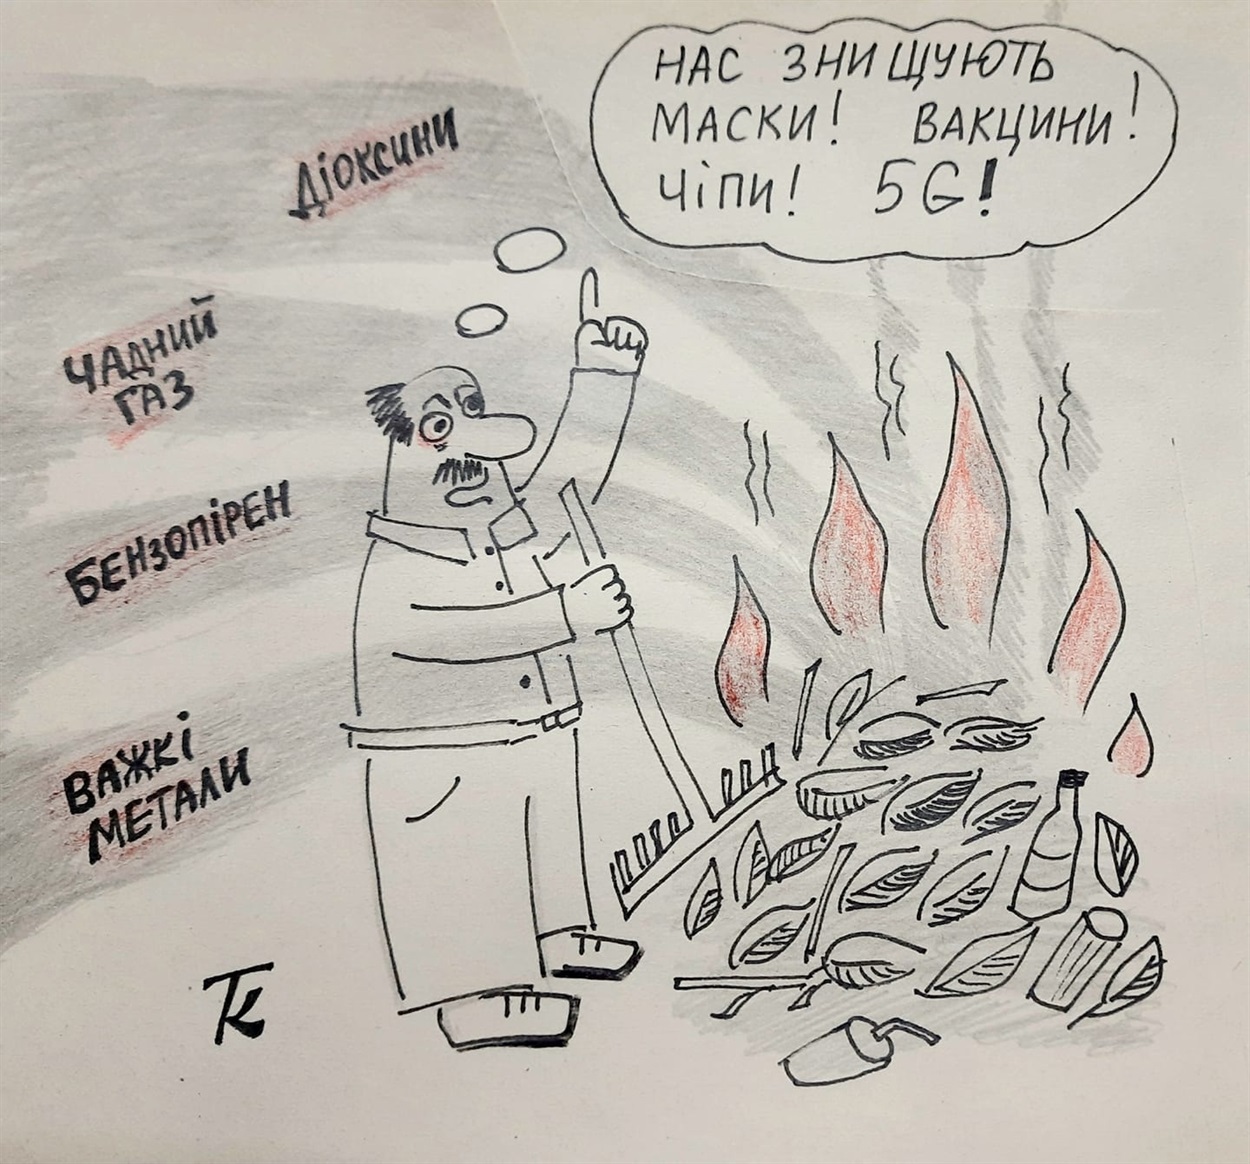 НАС ЗНИЩУЮТЬ
МАСКИ! ВАКЦИНИ!
ЧІПИ! 5G!
ДІОКСИНИ
ЧАДНИЙ
ГАЗ
БЕНЗОПІРЕН
ВАЖКІ
МЕТАЛИ
ТК